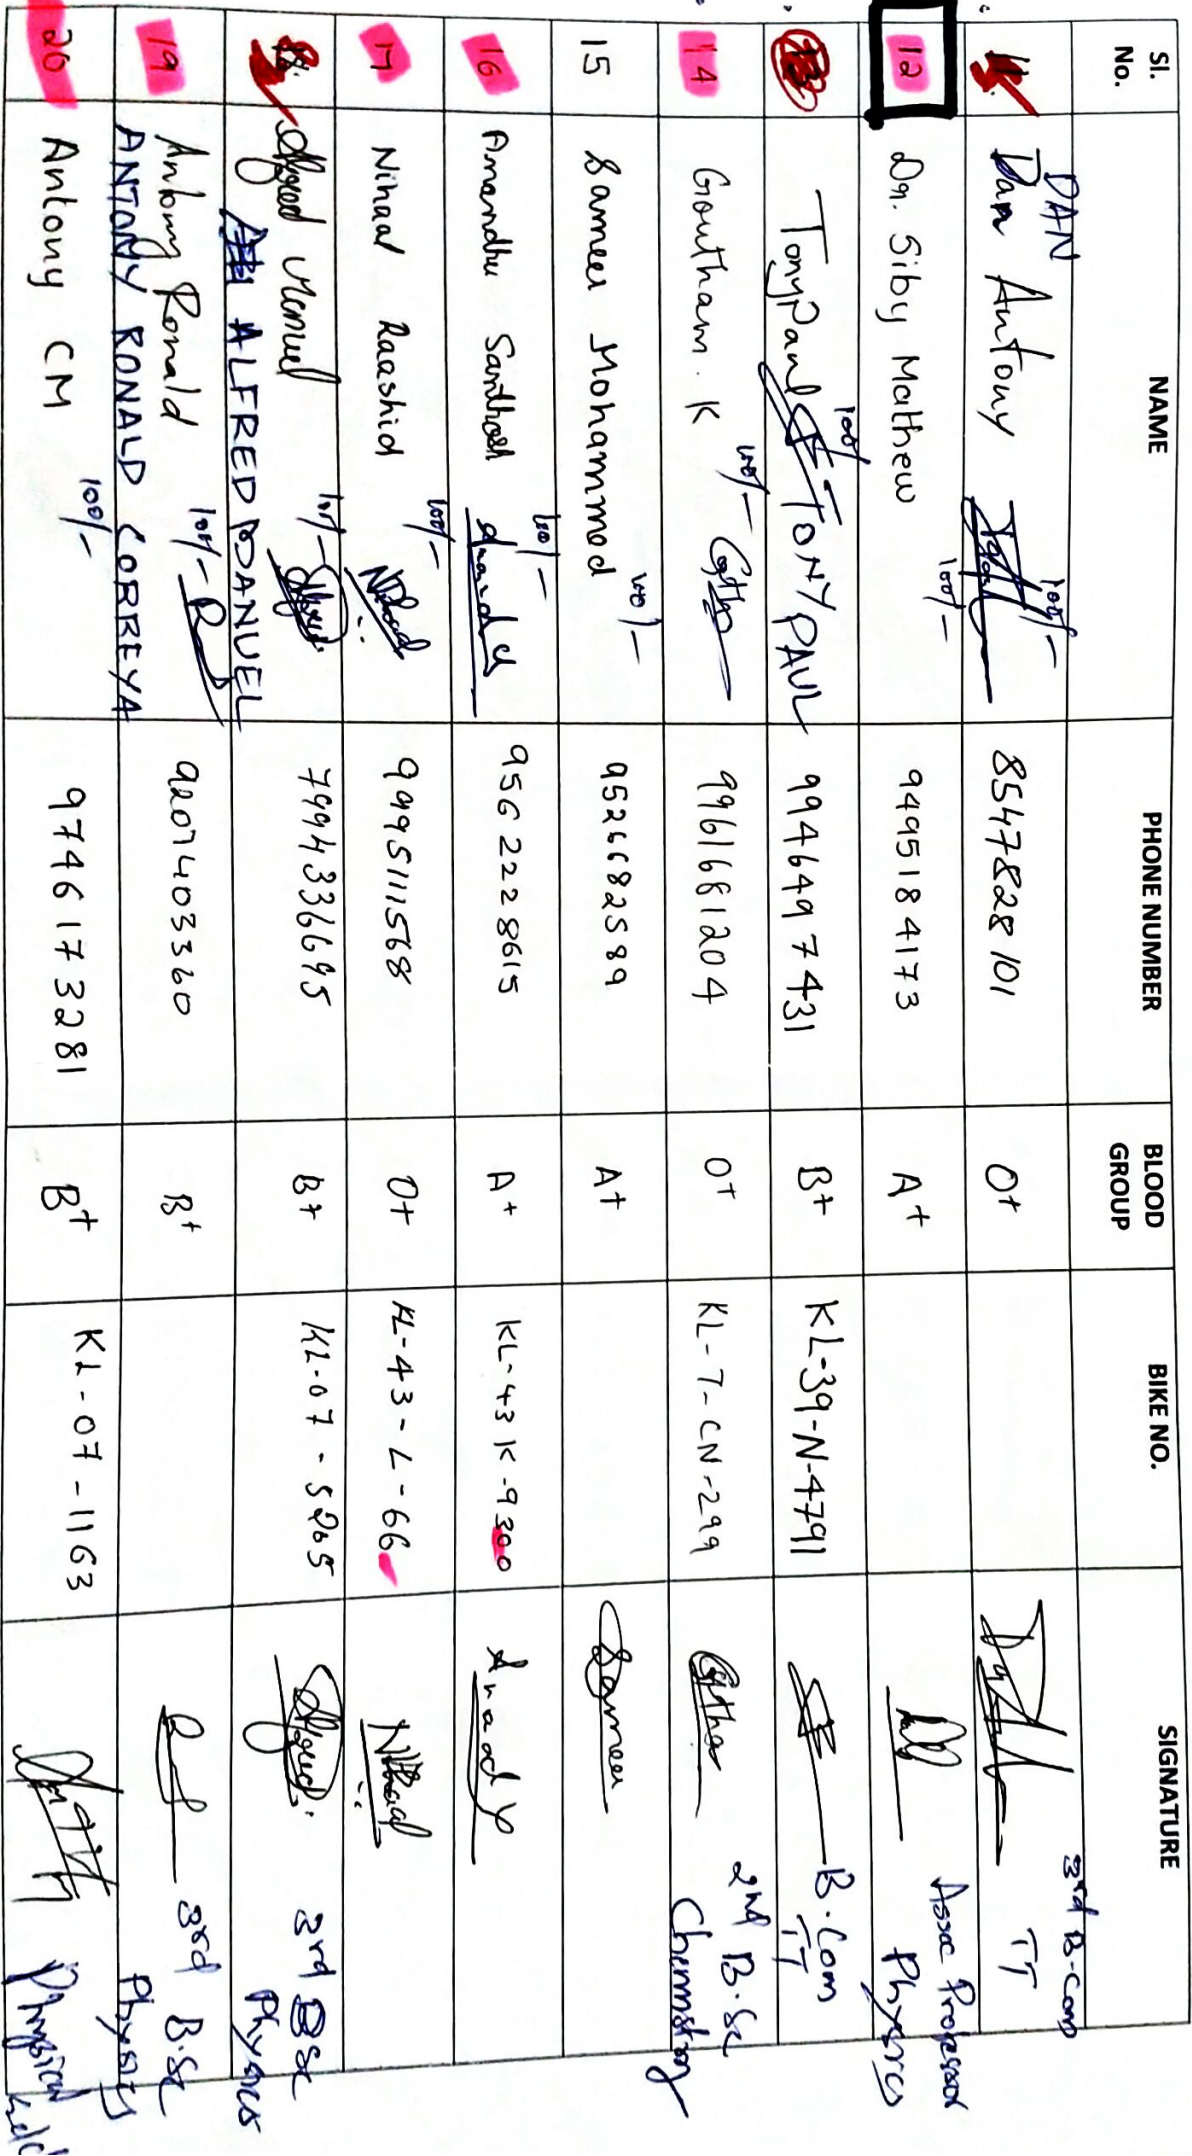 Sl. No. NAME PHONE NUMBER BLOOD GROUP BIKE NO. SIGNATURE
11. DAN
Dan Antony 100/- 8547828101 O+ 3rd B-Com
TT
12 Dr. Siby Mathew 100/- 9495184173 A+ Assoc Professor
Physics
13 Tony Paul 100/- TONY PAUL 9946497431 B+ KL-39-N-4791 B.Com
TT
14 Goutham. K 100/- 9961681204 O+ KL-7-CN-299 2nd B.Sc
Chemistry
15 Sameer Mohammed 100/- 9526682589 A+ Sameer
16 Anandhu Santhosh 100/- 9562228615 A+ KL-43 K-9300
17 Nihaal Raashid 100/- 9995111568 O+ KL-43-L-66 Nihaal
18. Alfred Manuel 100/- 7994336695 B+ KL-07-5265 3rd BSc
ALFRED MANUEL Physics
19 Antony Ronald 100/- 9207403360 B+ 3rd B.Sc
ANTONY RONALD CORREYA Physics
20 Antony CM 100/- 9746173281 B+ KL-07-1163 Physical